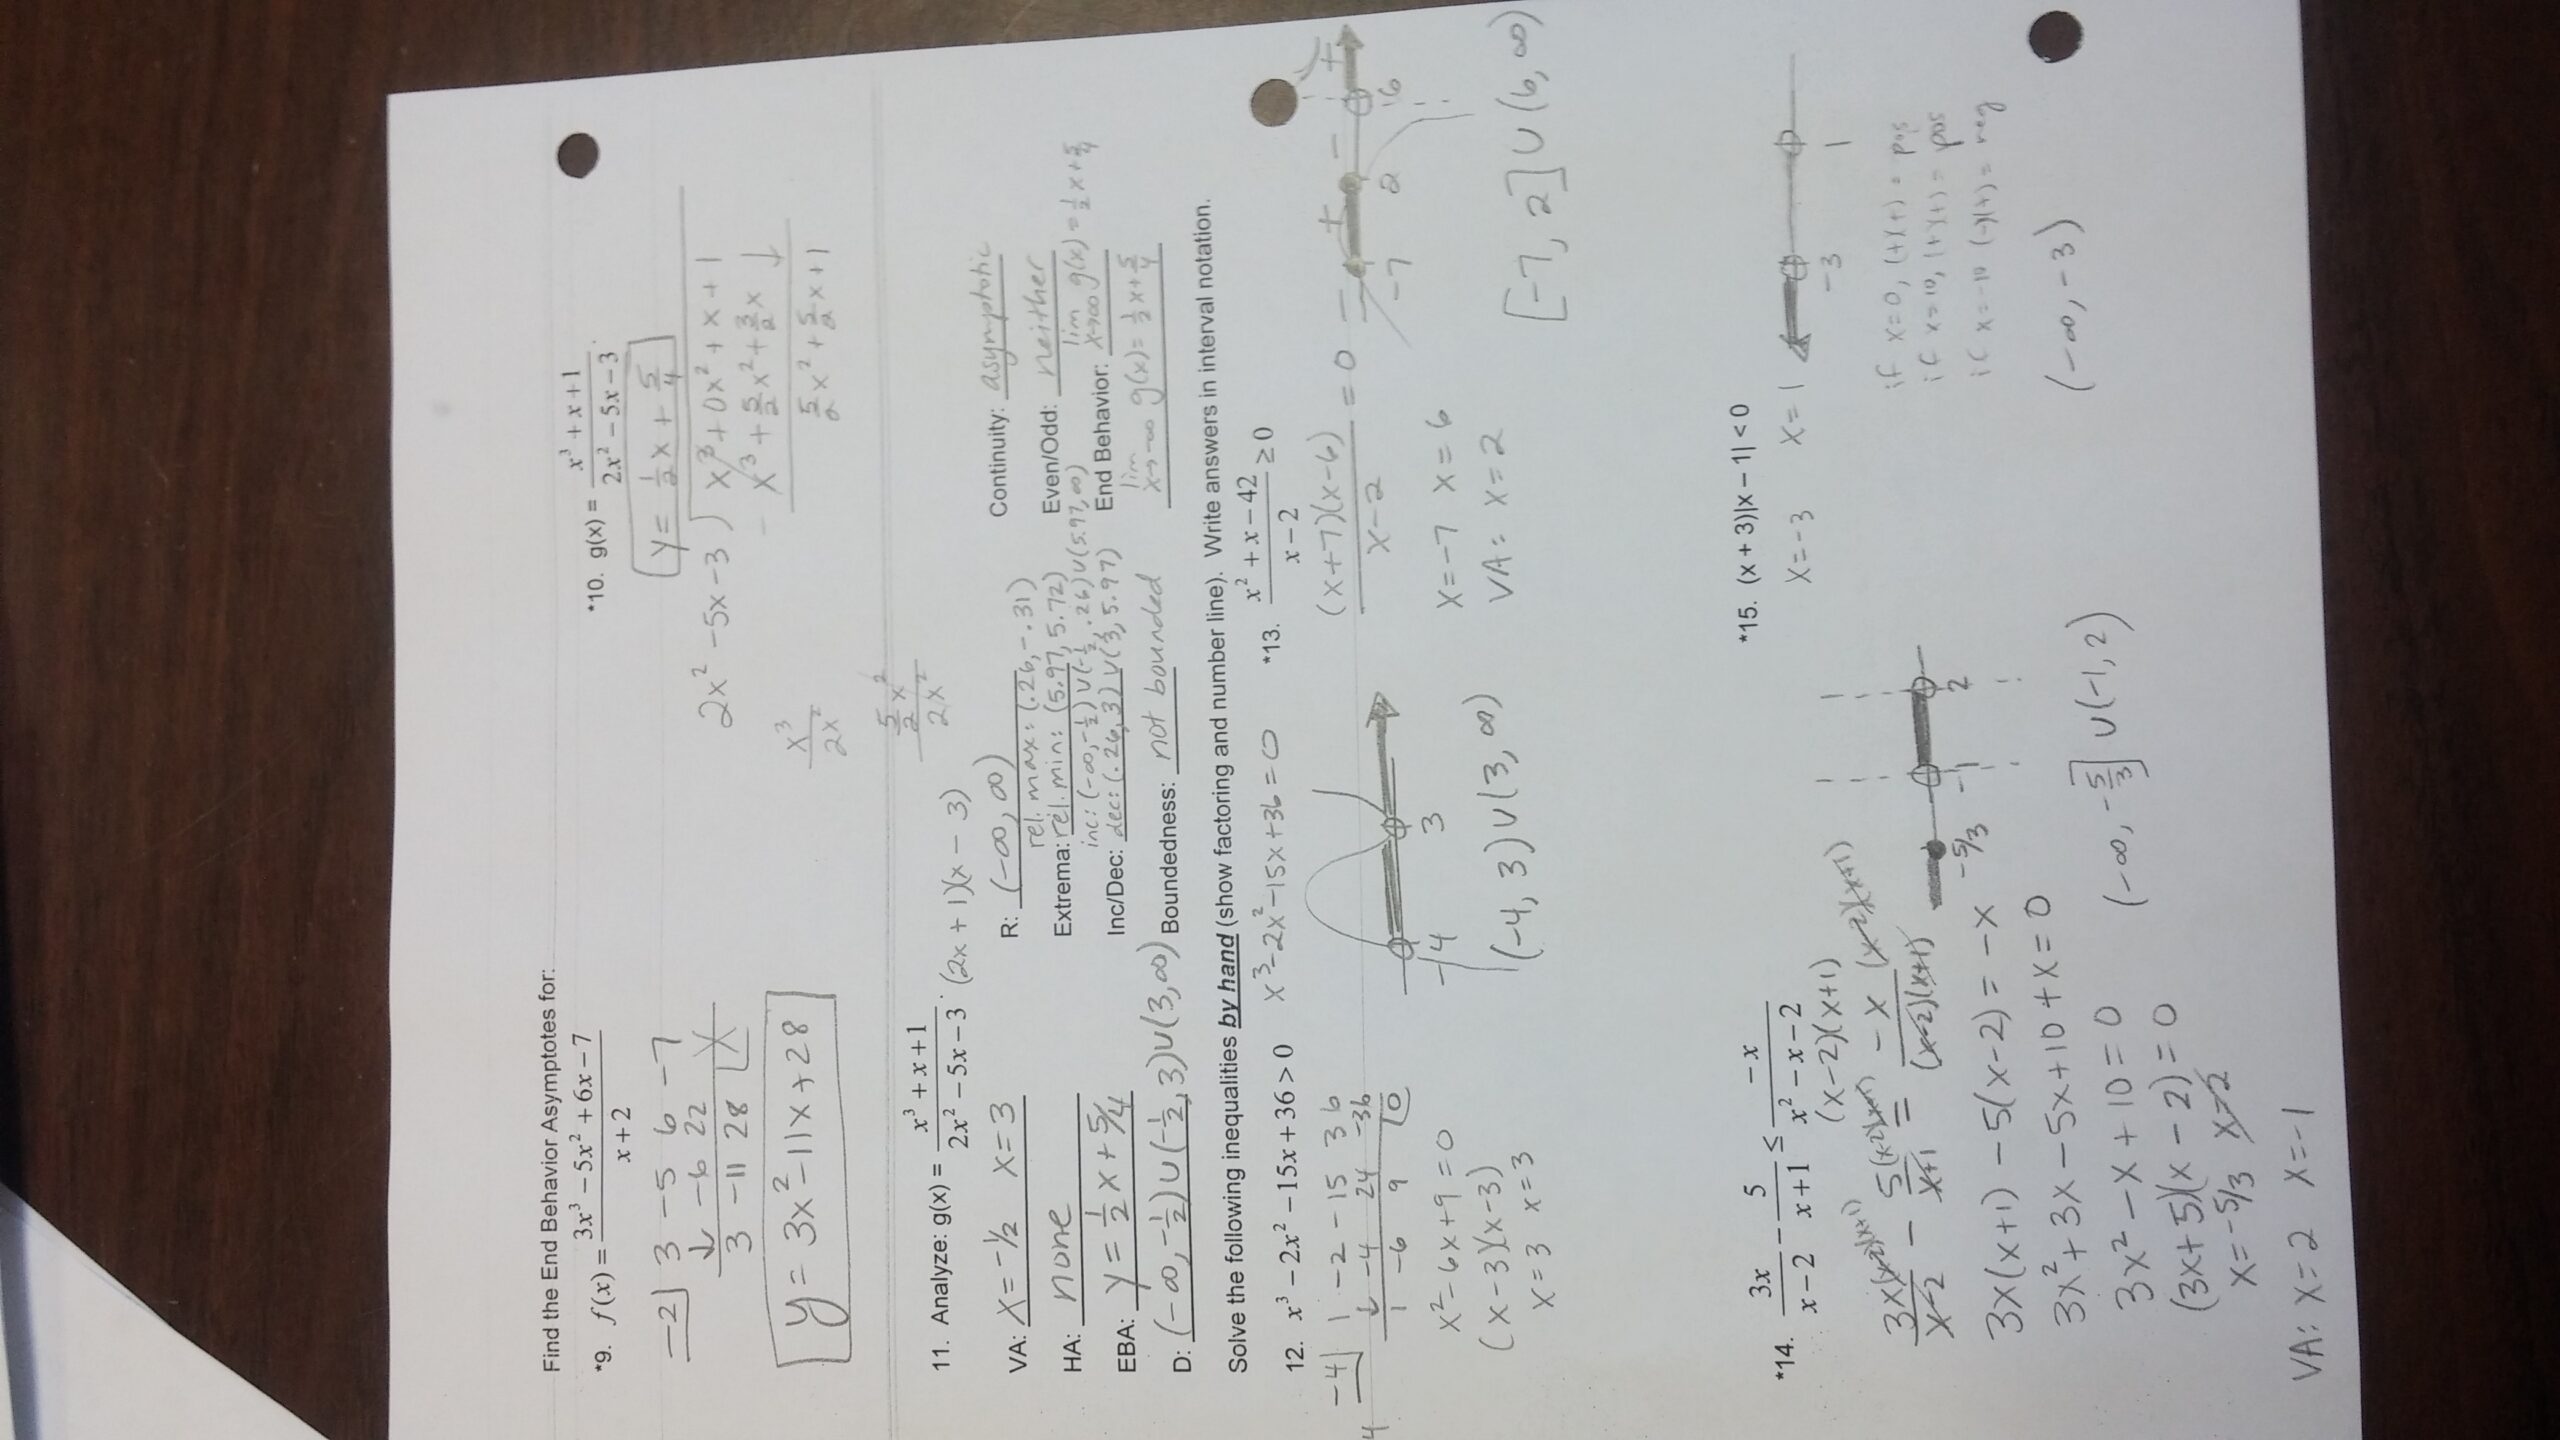 Find the End Behavior Asymptotes for:
*9. f(x) = (3x³ − 5x² + 6x − 7)/(x + 2)
-2⌋ 3 -5 6 -7
↓ -6 22
3 -11 28 X
y = 3x² - 11x + 28
*10. g(x) = (x³ + x + 1)/(2x² − 5x − 3)
y = ½x + 5/4
2x² - 5x - 3 ) x³ + 0x² + x + 1
- x³ + 5/2 x² + 3/2 x ↓
5/2 x² + 5/2 x + 1
x³/2x²
(5/2 x²)/2x²
11. Analyze: g(x) = (x³ + x + 1)/(2x² − 5x − 3). (2x + 1)(x - 3)
VA: x = -½ x = 3
R: (-∞, ∞)
Continuity: asymptotic
HA: none
Extrema: rel. max: (.26, -.31)
rel. min: (5.97, 5.72)
Even/Odd: neither
EBA: y = ½x + 5/4
Inc/Dec: inc: (-∞, -½) ∪ (-½, .26) ∪ (5.97, ∞)
dec: (.26, 3) ∪ (3, 5.97)
End Behavior: lim x→∞ g(x) = ½x + 5/4
lim x→-∞ g(x) = ½x + 5/4
D: (-∞, -½) ∪ (-½, 3) ∪ (3, ∞)
Boundedness: not bounded
Solve the following inequalities by hand (show factoring and number line). Write answers in interval notation.
12. x³ − 2x² − 15x + 36 > 0
x³ - 2x² - 15x + 36 = 0
-4⌋ 1 -2 -15 36
↓ -4 24 -36
1 -6 9 0
x² - 6x + 9 = 0
(x - 3)(x - 3)
x = 3 x = 3
-4 3
(-4, 3) ∪ (3, ∞)
*13. (x² + x − 42)/(x − 2) ≥ 0
(x + 7)(x - 6)/(x - 2) = 0
x = -7 x = 6
VA: x = 2
- + - +
-7 2 6
[-7, 2] ∪ (6, ∞)
*14. 3x/(x − 2) − 5/(x + 1) ≤ −x/(x² − x − 2)
(x - 2)(x + 1)
3x(x-2)(x+1)/(x-2) - 5(x-2)(x+1)/(x+1) = -x(x-2)(x+1)/((x-2)(x+1))
3x(x + 1) - 5(x - 2) = -x
3x² + 3x - 5x + 10 + x = 0
3x² - x + 10 = 0
(3x + 5)(x - 2) = 0
x = -5/3 x = 2
VA: x = 2 x = -1
-5/3 -1 2
(-∞, -5/3] ∪ (-1, 2)
*15. (x + 3)|x − 1| < 0
x = -3 x = 1
-3 1
if x = 0, (+)(+) = pos
if x = 10, (+)(+) = pos
if x = -10 (-)(+) = neg
(-∞, -3)